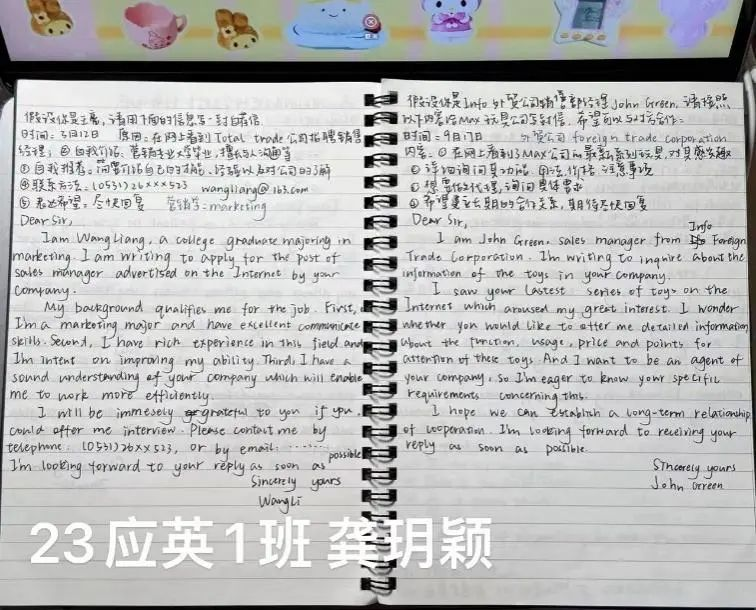 假设你是王亮,请用下面的信息写一封自荐信
时间:3月12日 原因:在网上看到Total trade公司招聘销售
经理; ②自我介绍:营销专业大学毕业,擅长与人沟通等
③自我推荐。简要介绍自己的技能、经验以及对公司的了解
④联系方法:(0531)26×××523 wangliang@163.com
⑤表达希望:尽快回复 营销学:marketing
Dear Sir,
I am WangLiang, a college graduate majoring in
marketing. I am writing to apply for the post of
sales manager advertised on the Internet by your
company.
My background qualifies me for the job. First,
I'm a marketing major and have excellent communicate
skills. Second, I have rich experience in this field and
I'm intent on improving my ability. Third, I have a
sound understanding of your company which will enable
me to work more efficiently.
I will be immesely grateful to you if you
could offer me interview. Please contact me by
telephone: (0531)26××523, or by email: ········
I'm looking forward to your reply as soon as possible
Sincerely yours
WangLi
假设你是Info外贸公司销售部经理John Green,请按照
以下内容给Max玩具公司写封信,希望可以与对方合作:
时间:9月17日 外贸公司foreign trade corporation
内容:①在网上看到了MAX公司的最新系列玩具,对其感兴趣
②详细询问其功能、用法、价格、注意事项
③想要做代理,询问具体要求
④希望建立长期的合作关系,期待尽快回复
Dear Sir,
I am John Green, sales manager from Info Foreign
Trade Corporation. I'm writing to inquire about the
information of the toys in your company.
I saw your lastest series of toys on the
Internet which aroused my great interest. I wonder
whether you would like to offer me detailed information
about the function, usage, price and points for
attention of these toys. And I want to be an agent of
your company, so I'm eager to know your specific
requirements concerning this.
I hope we can establish a long-term relationship
of cooperation. I'm looking forward to receiving your
reply as soon as possible.
Sincerely yours
John Green
23应英1班 龚玥颖